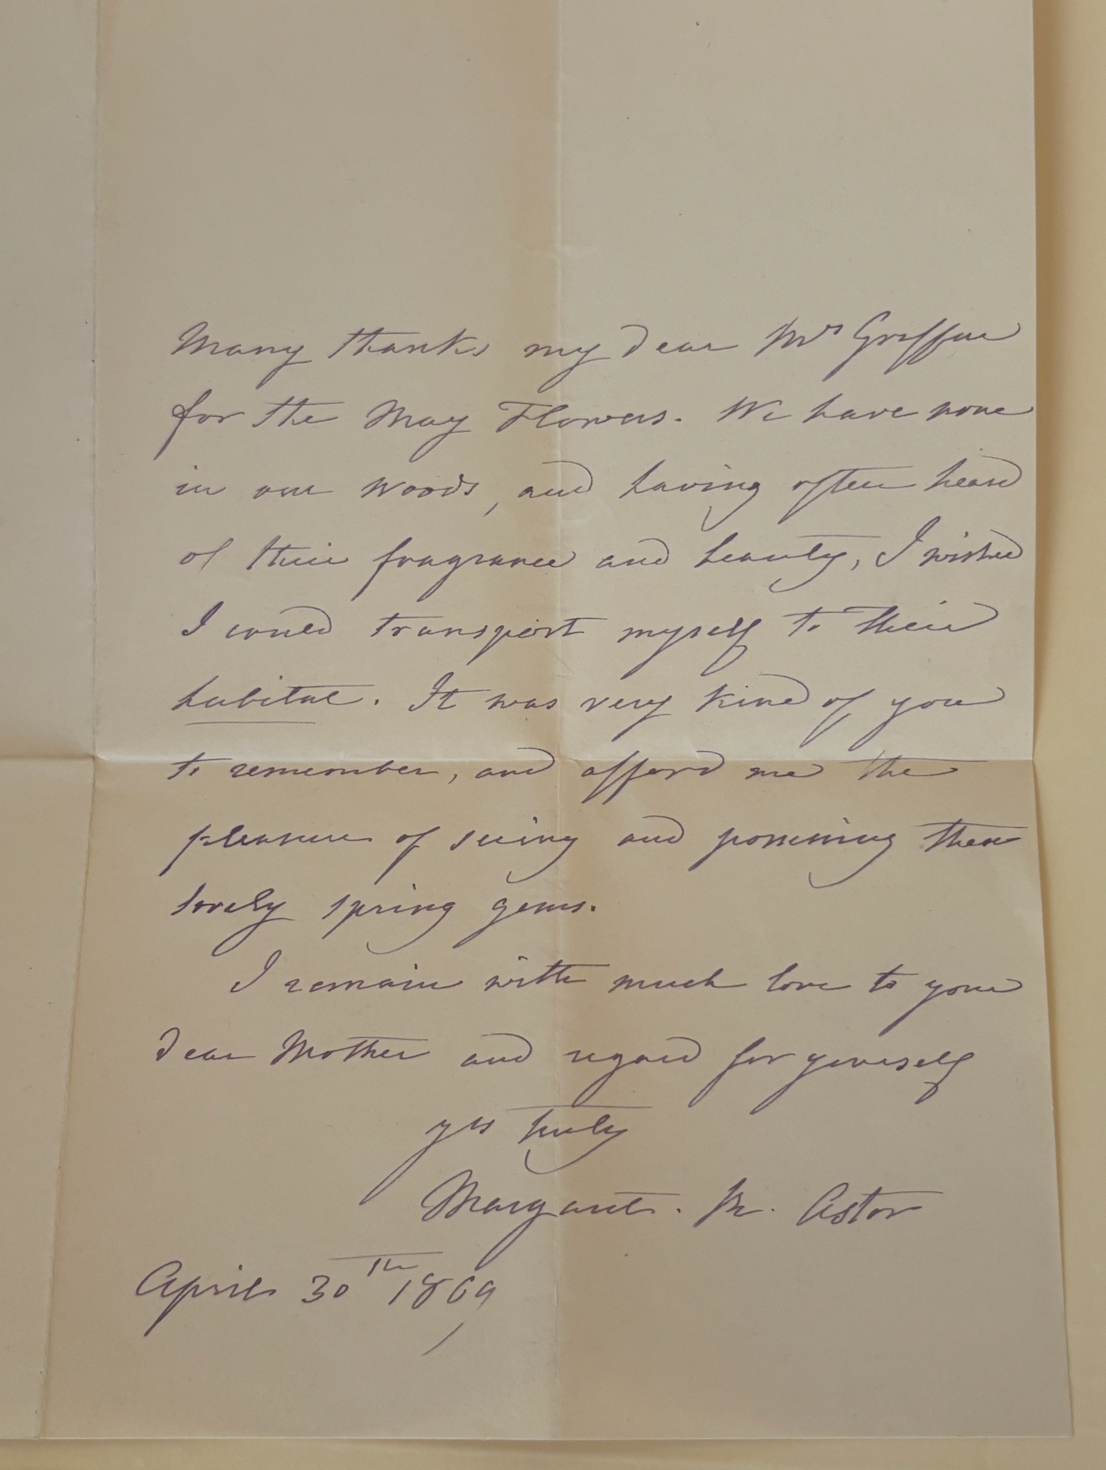 Many thanks my dear Mrs Griffin
for the May Flowers. We have none
in our woods, and having often heard
of their fragrance and beauty, I wished
I could transport myself to their
habitat. It was very kind of you
to remember, and afford me the
pleasure of seeing and possessing these
lovely spring gems.
I remain with much love to your
dear Mother and regard for yourself
yrs truly
Margaret. R. Astor
April 30th 1869